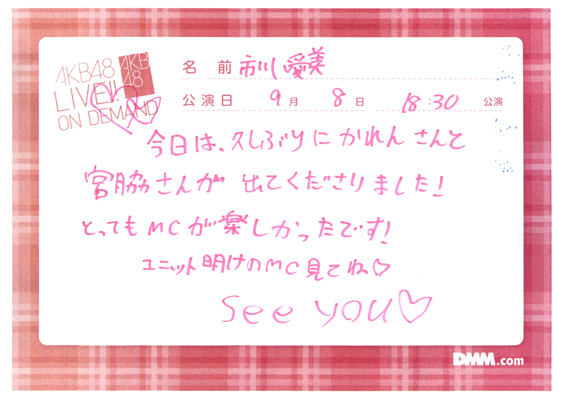 AKB48
LIVE!!
ON DEMAND
AKB
48
名 前 市川 愛美
公演日 9月 8日 18:30 公演
今日は、久しぶりに かれん さんと
宮脇さんが 出てくださりました!
とっても MCが楽しかったです!
ユニット明けのMC見てね♡
see you♡
DMM.com